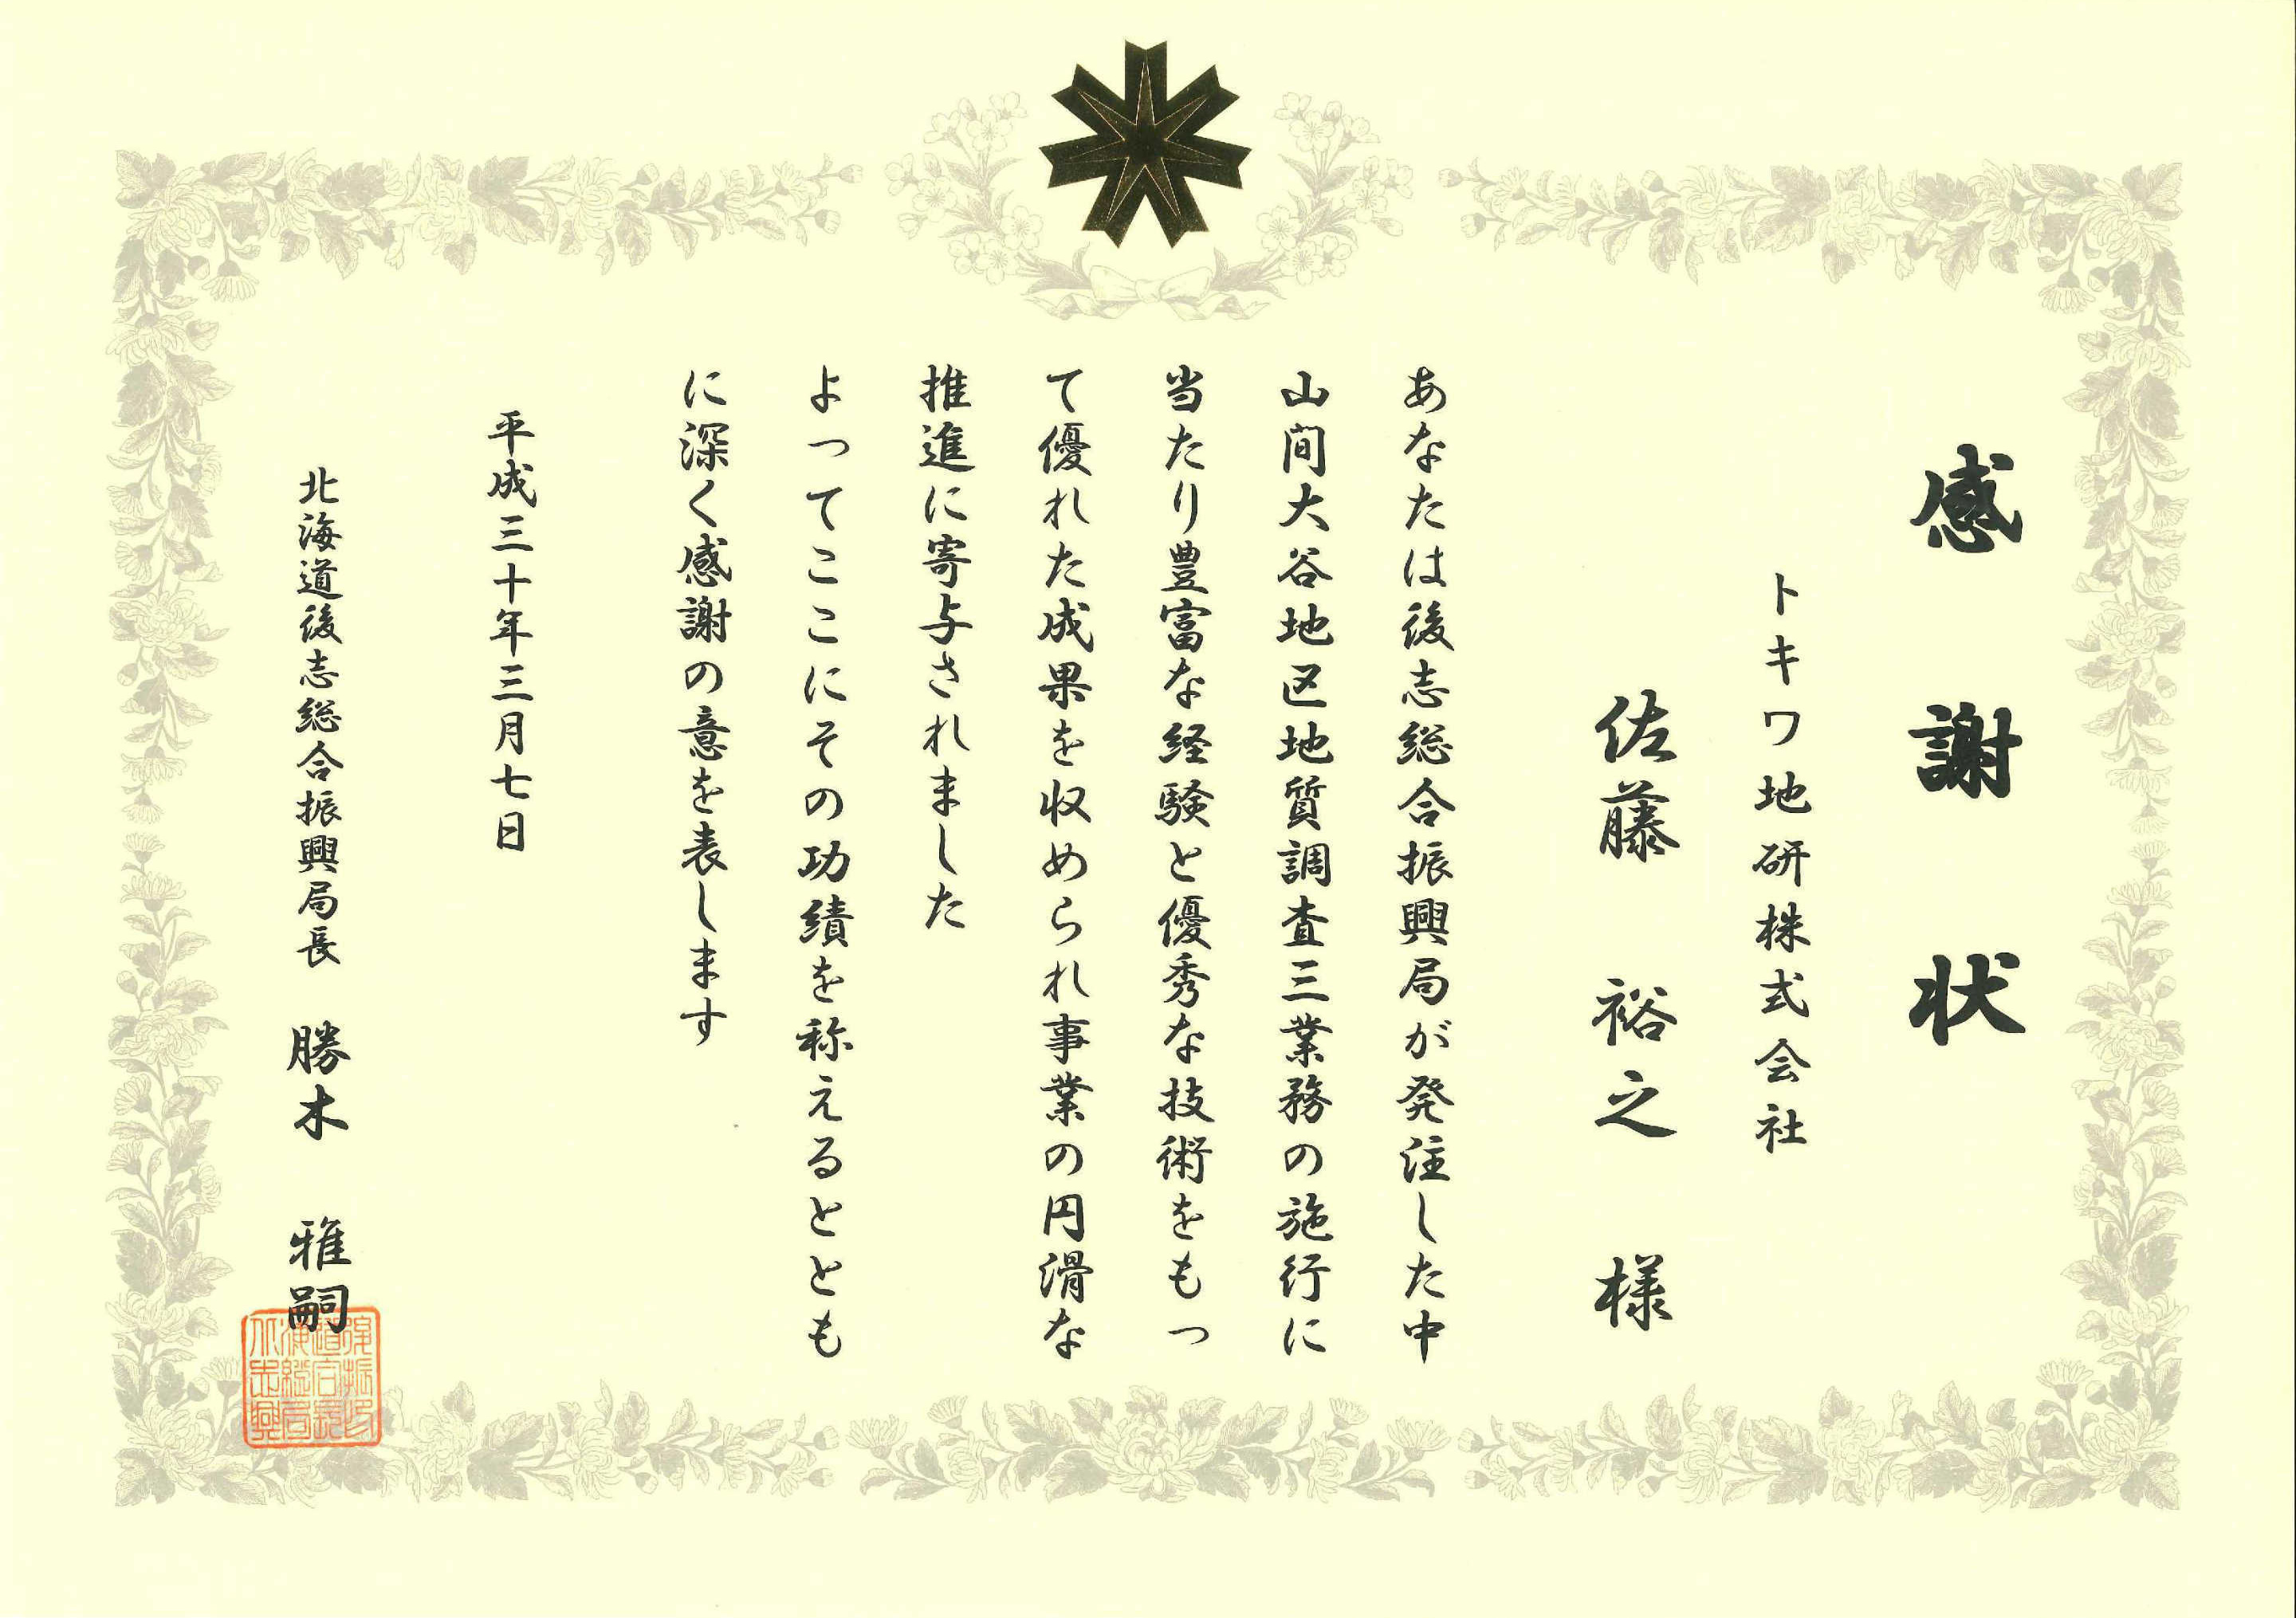 感謝状
トキワ地研株式会社
佐藤 裕之 様
あなたは後志総合振興局が発注した中
山間大谷地区地質調査三業務の施行に
当たり豊富な経験と優秀な技術をもっ
て優れた成果を収められ事業の円滑な
推進に寄与されました
よってここにその功績を称えるととも
に深く感謝の意を表します
平成三十年三月七日
北海道後志総合振興局長 勝木 雅嗣